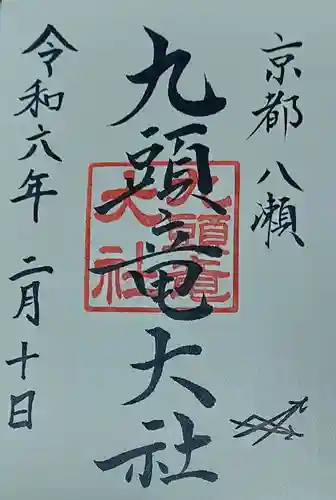 京都八瀬
九頭竜大社
九頭竜
大社
令和六年二月十日